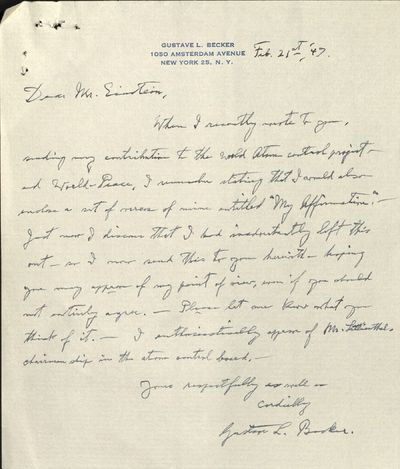 GUSTAVE L. BECKER
1050 AMSTERDAM AVENUE
NEW YORK 25, N. Y.
Feb. 21st, '47.
Dear Mr. Einstein,
When I recently wrote to you,
sending my contribution to the World Atom control project -
and World-Peace, I remember stating that I would also
enclose a set of verses of mine entitled "My Affirmation". -
Just now I discover that I had inadvertently left this
out - so I now send this to you herewith - hoping
you may approve of my point of view, even if you should
not entirely agree. - Please let me know what you
think of it. - I enthusiastically approve of Mr. Lilienthal's
chairmanship in the atom control board. -
Yours respectfully as well as
cordially
Gustave L. Becker.